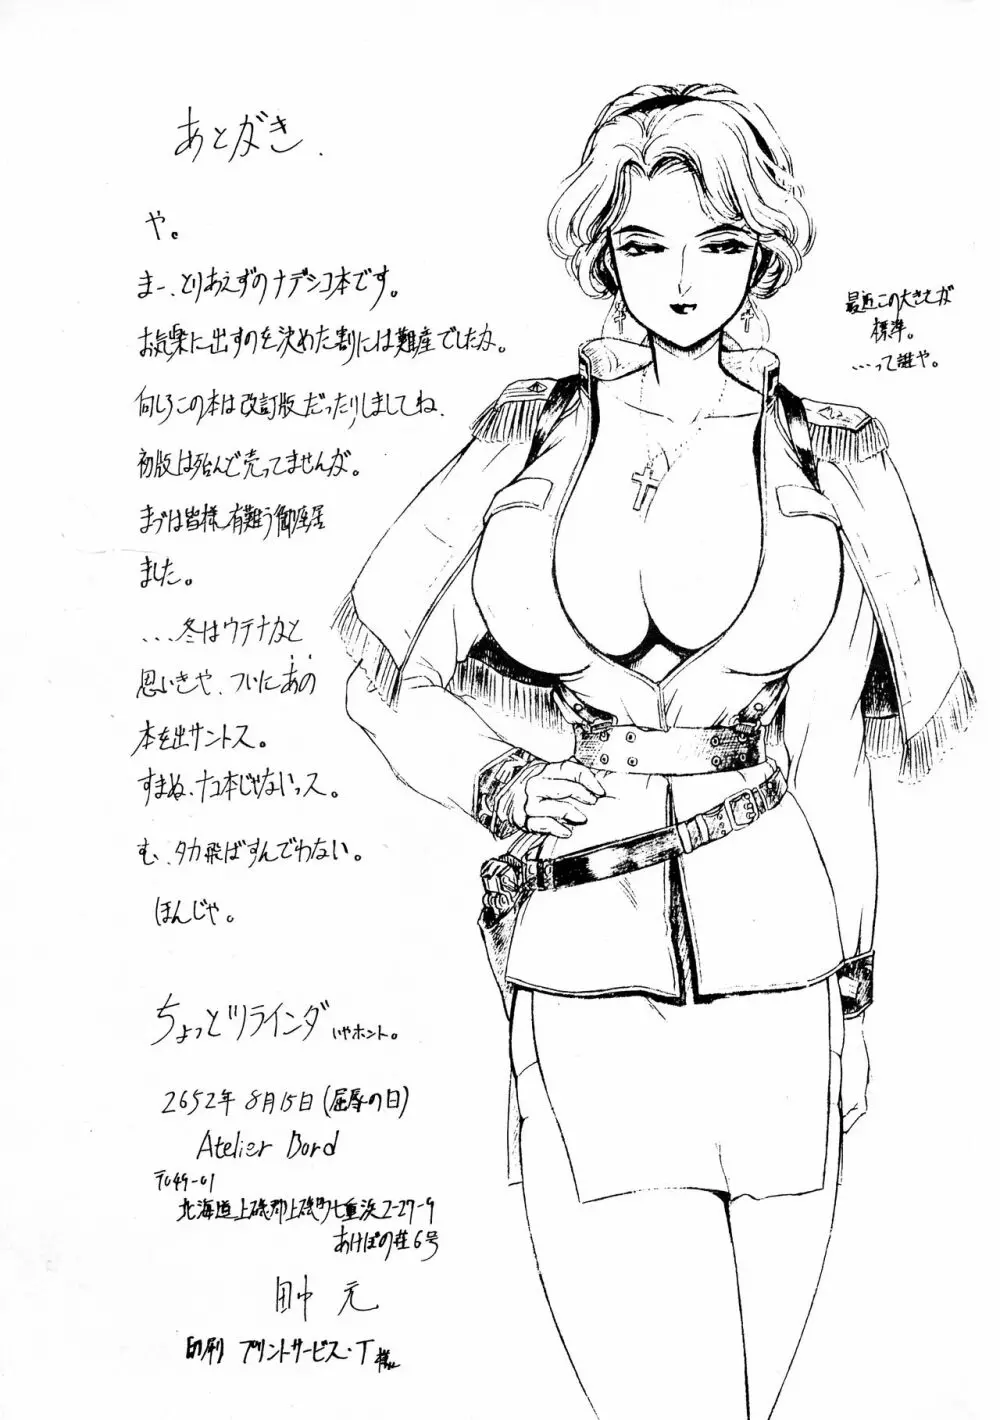 あとがき.
や。
まー、とりあえずのナデシコ本です。
お気楽に出すのを決めた割には難産でしたか。
何しろこの本は改訂版だったりしましてね、
初版は殆んど売ってませんが。
まづは皆様、有難う御座居
ました。
...冬はウテナかと
思いきや、ついにあの
本を出サントス。
すまぬ、ナコ本じゃないっス。
む、タカ飛ばすんでわない。
ほんじゃ。
最近この大きさが
標準。
...って誰や。
ちょっとツラインダ いやホント。
2652年 8月15日(屈辱の日)
Atelier Bord
〒049-01
北海道上磯郡上磯町七重浜2-27-9
あけぼの荘6号
田中 元
印刷 プリントサービス・T様